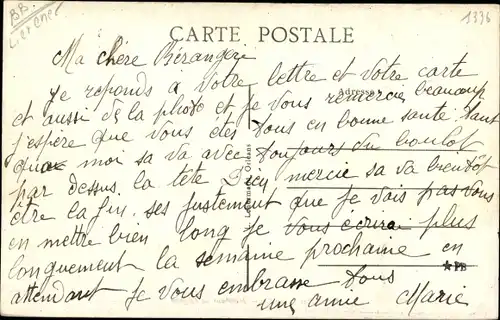 BB.
1336
CARTE POSTALE
Ma chère Bérangere
Je reponds a votre lettre et votre carte
Adresse
et aussi de la photo et je vous remercie beaucoup
j'espère que vous étes tous en bonne sante tant
qua moi sa va avec toujours du boulot
par dessus la tete Dieu mercie sa va bientôt
être la fin ses justement que je vais pas vous
en mettre bien long je vous écrira plus
longuement la semaine prochaine en
attendant je vous embrasse tous
une amie Marie
Lenormand, Orléans
★ PB